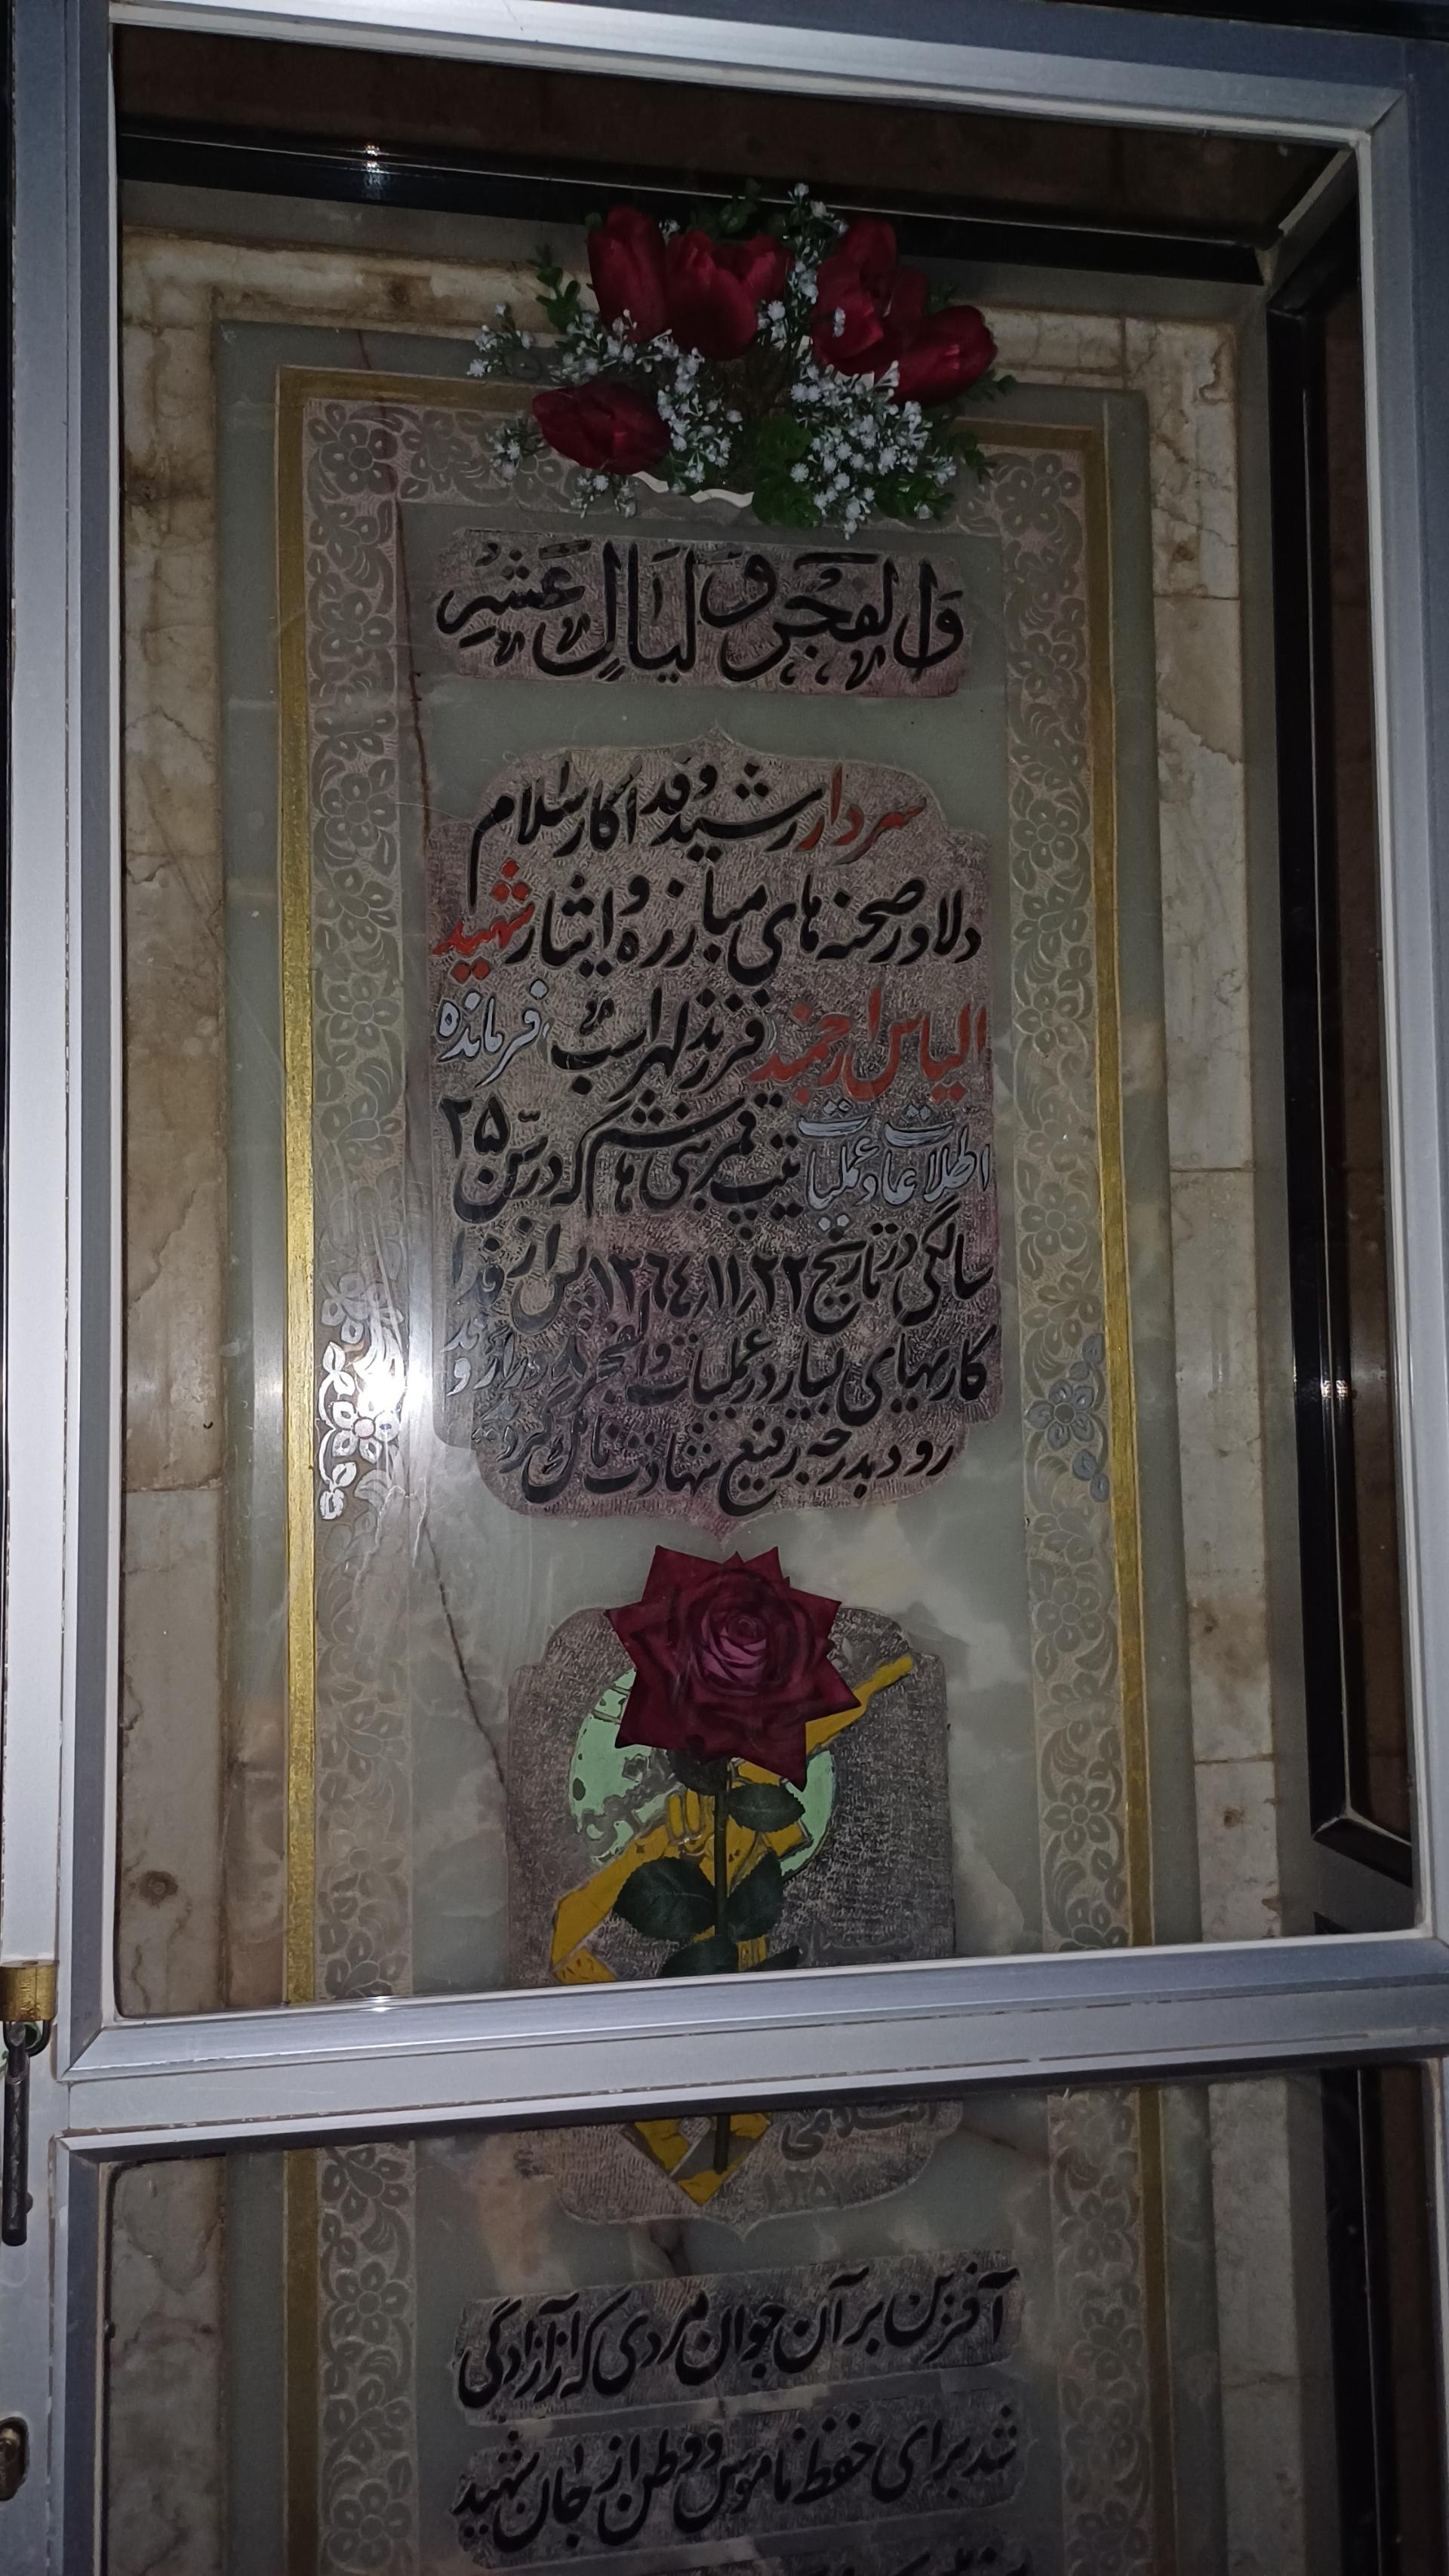 وَالفَجرِ وَ لَيَالٍ عَشرٍ
سردار رشید و فداکار اسلام
دلاور صحنه های مبارزه و ایثار شهید
الیاس ارجمند فرزند لهراسب فرمانده
اطلاعات و عملیات تیپ قمر بنی هاشم که در سن ۲۵
سالگی در تاریخ ۱۳۶۴/۱۱/۲۲ پس از فدا
کاریهای بسیار در عملیات والفجر
رود بدرجه رفیع شهادت نائل گردید
اسلامی
آفرین بر آن جوان مردی که از آزادگی
شد برای حفظ ناموس و وطن از جان شهید